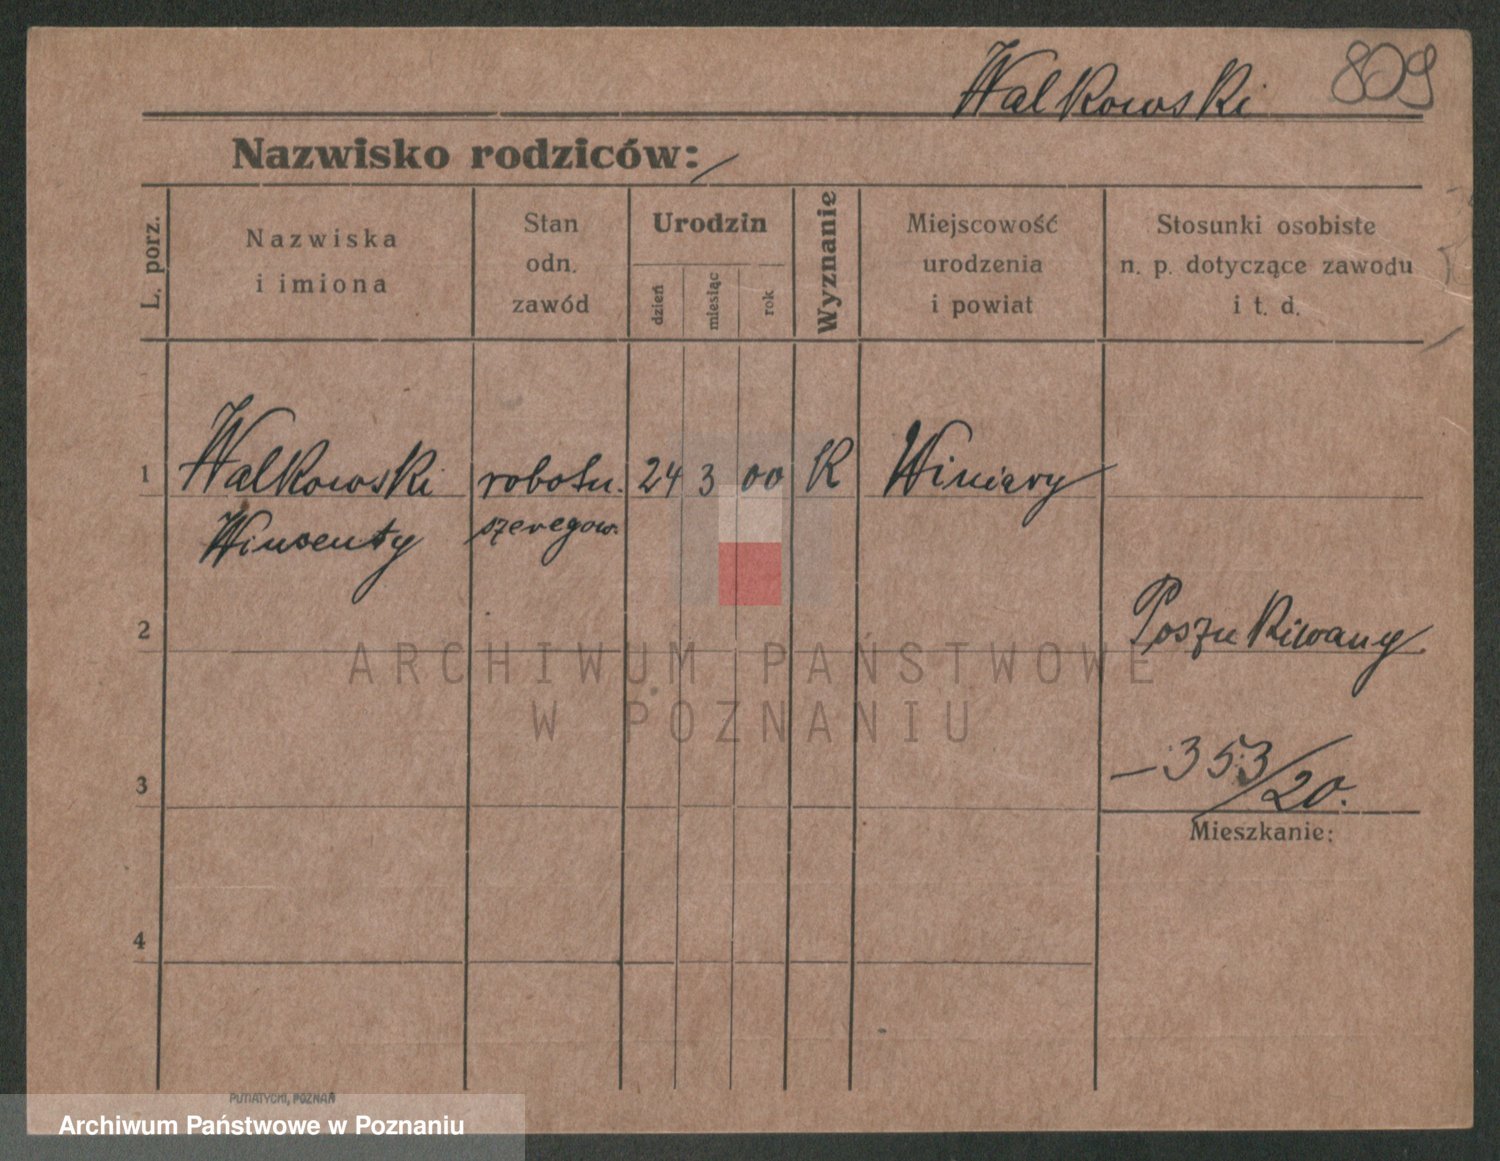 Walkowski 809
Nazwisko rodziców:
L. porz.
Nazwiska
i imiona
Stan
odn.
zawód
Urodzin
dzień
miesiąc
rok
Wyznanie
Miejscowość
urodzenia
i powiat
Stosunki osobiste
n. p. dotyczące zawodu
i t. d.
1 Walkowski robotn. 24 3 00 K Winiary
Wincenty szeregow.
2 Poszukiwany
ARCHIWUM PAŃSTWOWE
W POZNANIU
3 — 353/20.
Mieszkanie:
4
PUTIATYCKI, POZNAŃ
Archiwum Państwowe w Poznaniu